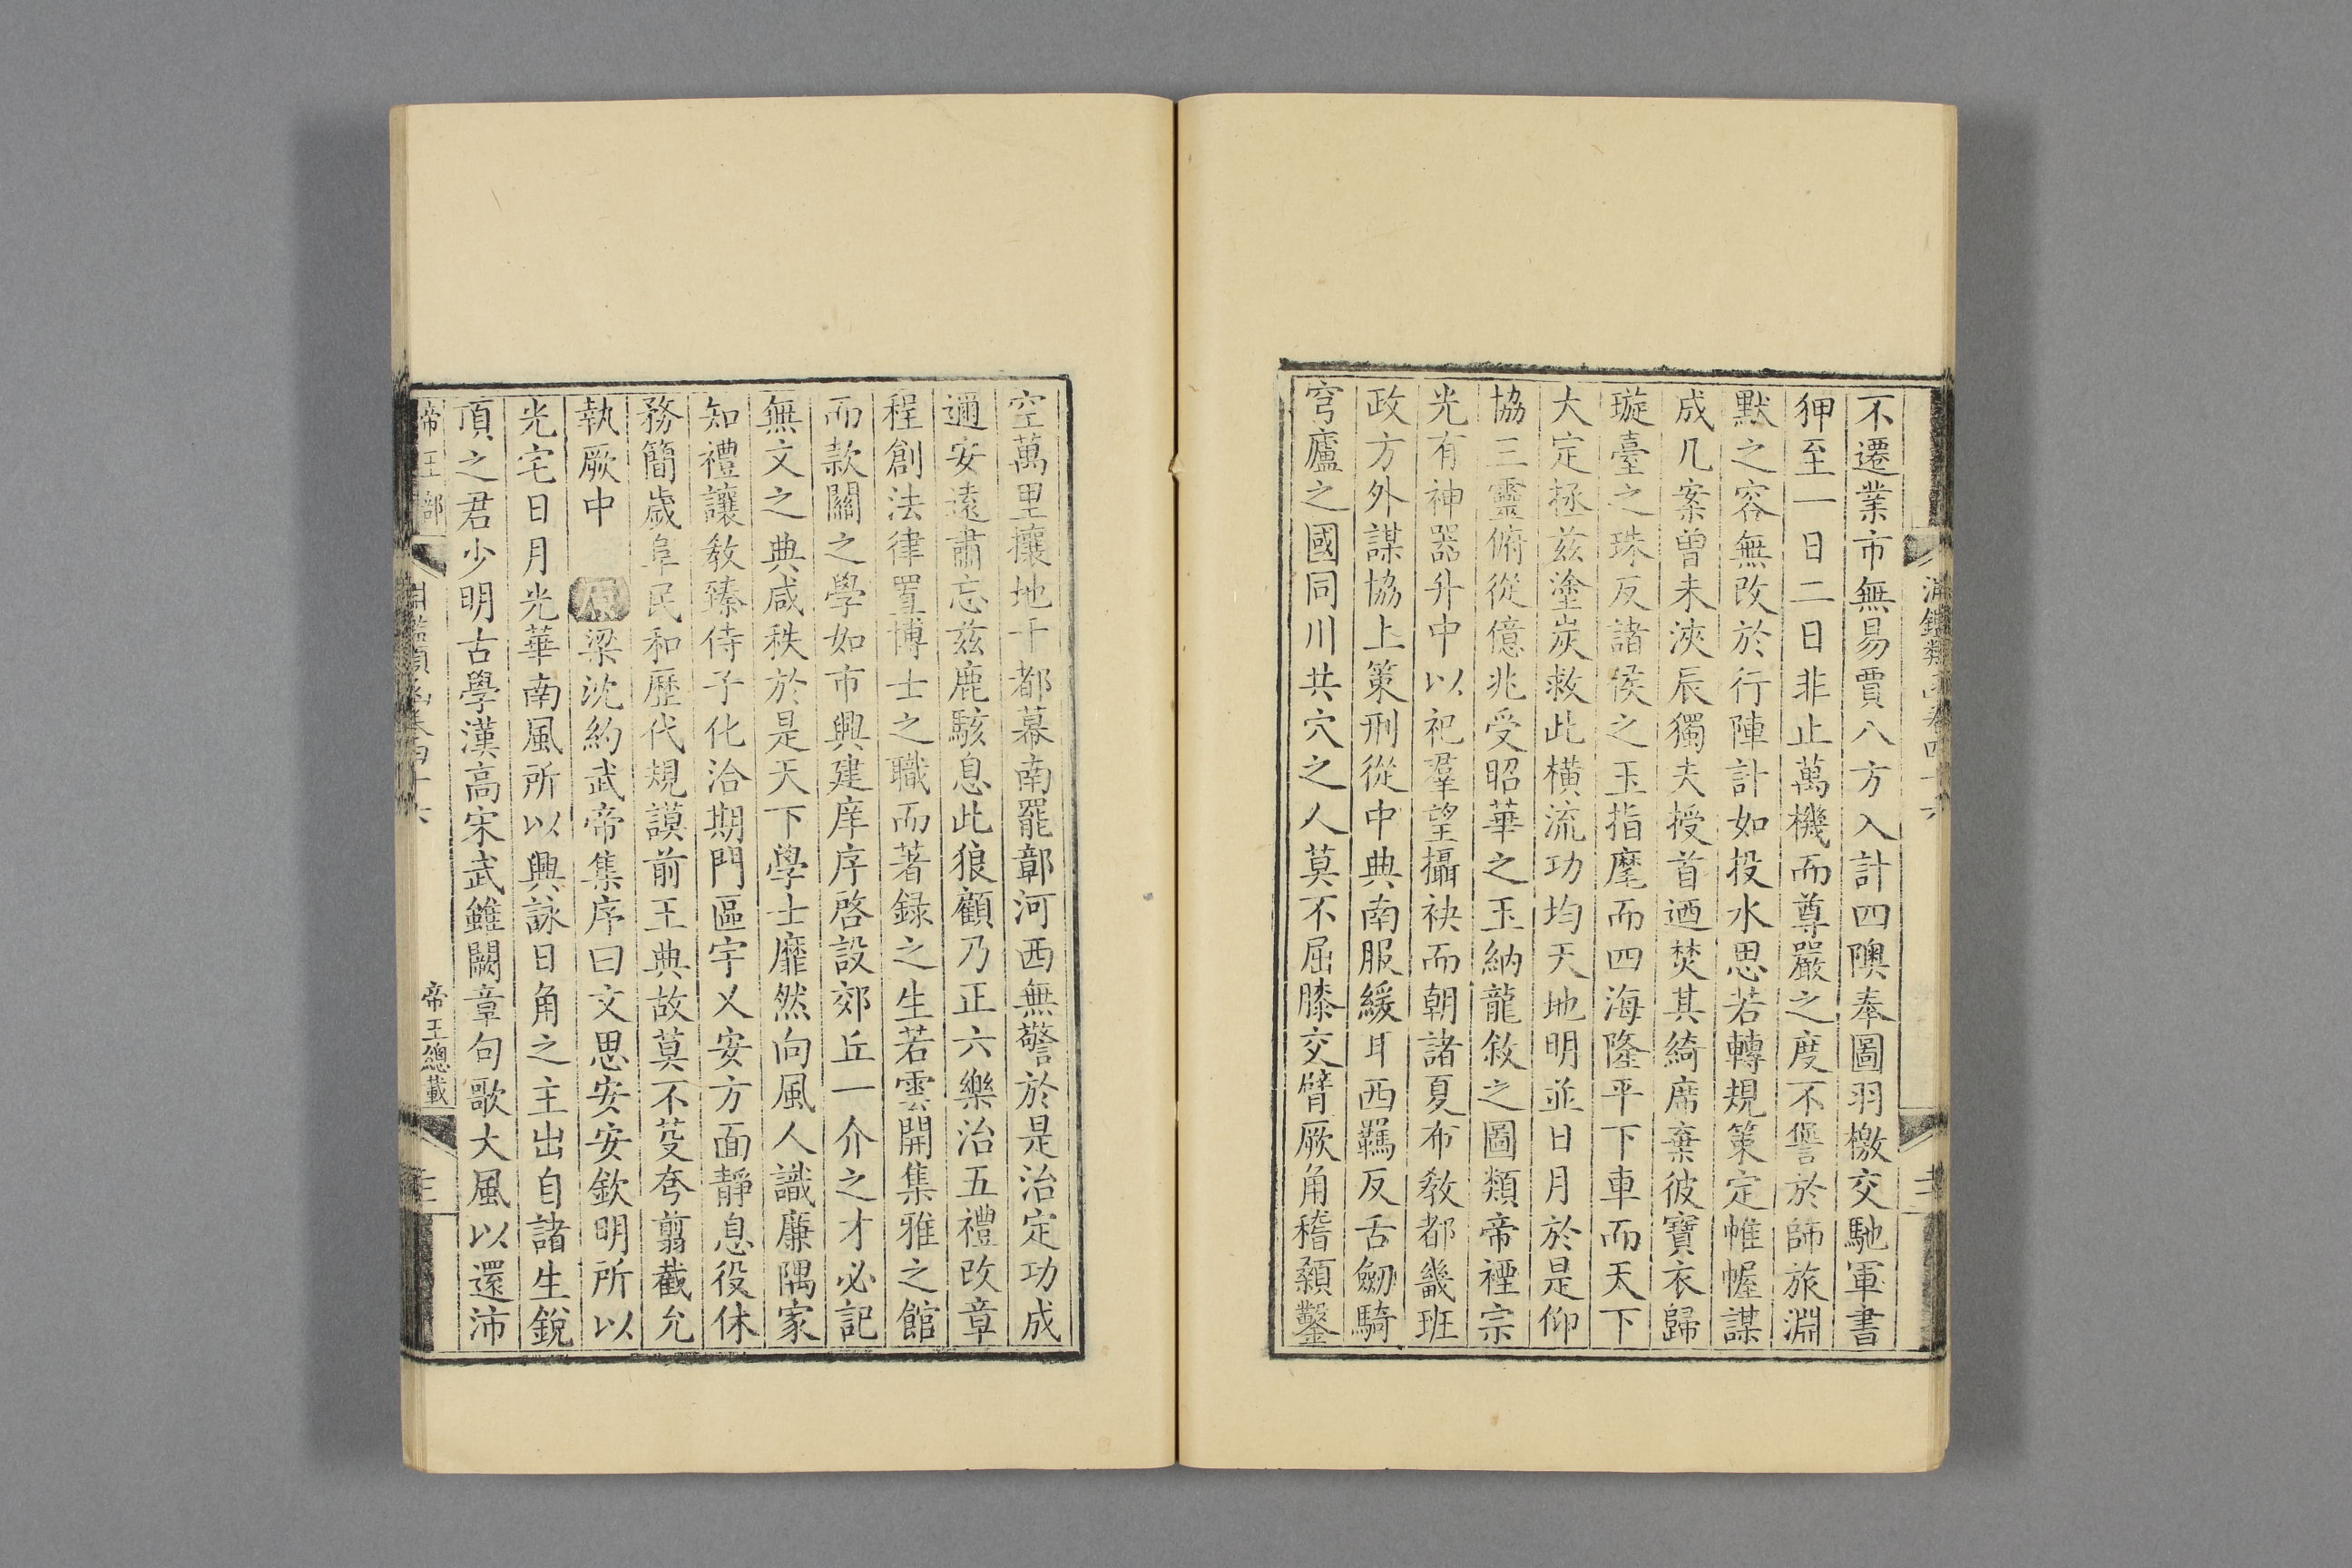 不遷業市無易賈八方入計四隩奉圖羽檄交馳軍書
狎至一日二日非止萬機而尊嚴之度不諐於師旅淵
默之容無改於行陣計如投水思若轉規策定帷幄謀
成几案曾未浹辰獨夫授首迺焚其綺席棄彼寶衣歸
璇臺之珠反諸侯之玉指麾而四海隆平下車而天下
大定拯兹塗炭救此橫流功均天地明並日月於是仰
協三靈俯從億兆受昭華之玉納龍敘之圖類帝禋宗
光有神器升中以祀羣望攝袂而朝諸夏布敎都畿班
政方外謀協上策刑從中典南服緩耳西羈反舌劒騎
穹廬之國同川共穴之人莫不屈膝交臂厥角稽顙鑿
空萬里攘地千都幕南罷鄣河西無警於是治定功成
邇安遠肅忘兹鹿駭息此狼顧乃正六樂治五禮改章
程創法律置博士之職而著録之生若雲開集雅之館
而款關之學如市興建庠序啓設郊丘一介之才必記
無文之典咸秩於是天下學士靡然向風人識廉隅家
知禮讓敎臻侍子化洽期門區宇乂安方面靜息役休
務簡歲阜民和歷代規謨前王典故莫不芟夸翦截允
執厥中 原 梁沈約武帝集序曰文思安安欽明所以
光宅日月光華南風所以興詠日角之主出自諸生銳
頂之君少明古學漢高宋武雖闕章句歌大風以還沛
帝王部
帝王總載